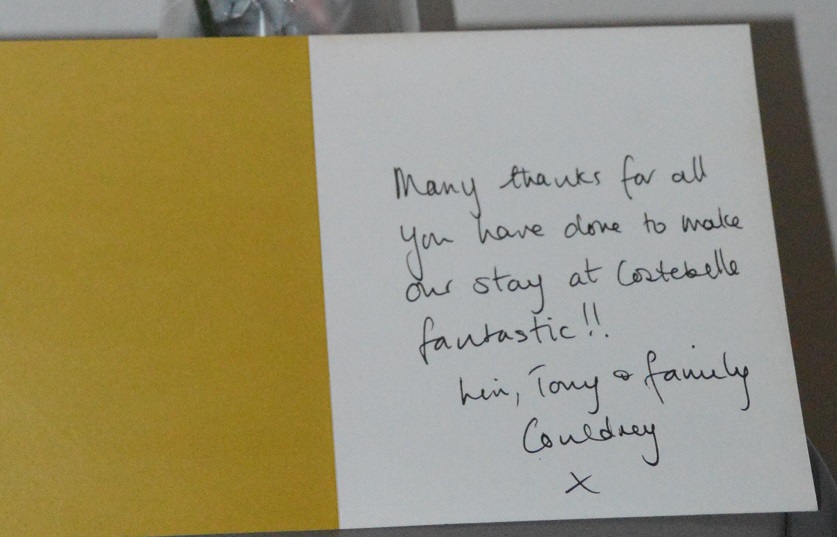 Many thanks for all
you have done to make
our stay at Costebelle
fantastic!!
Lin, Tony & family
Couldrey
x